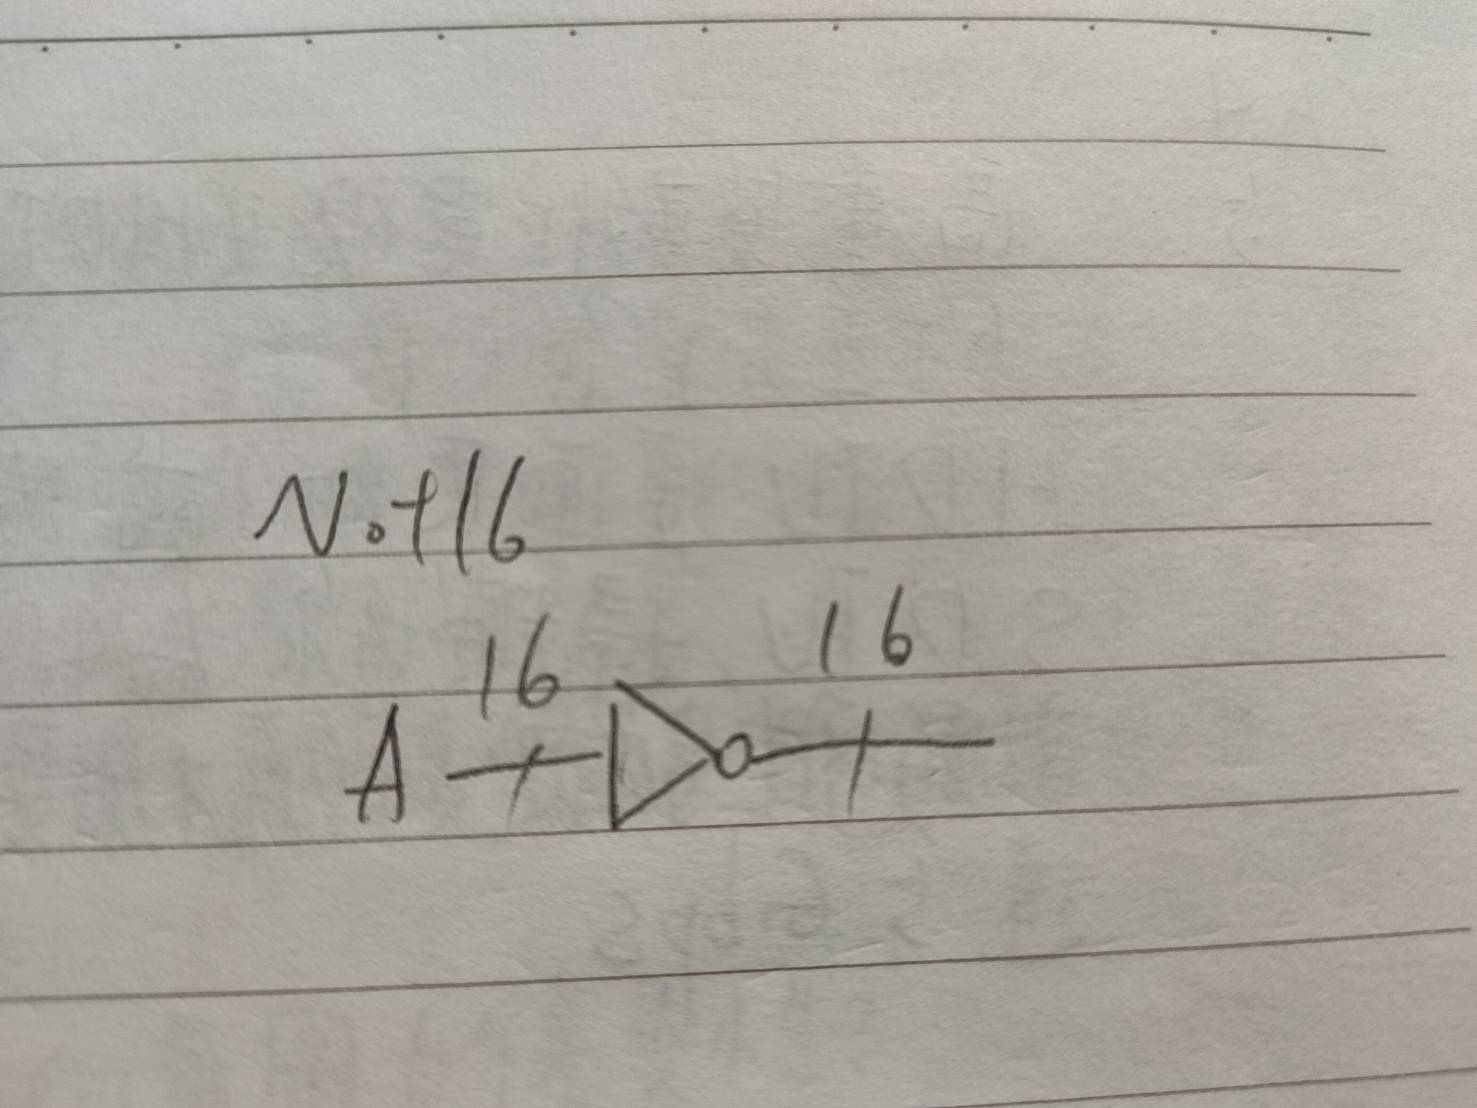 Not16
16 16
A